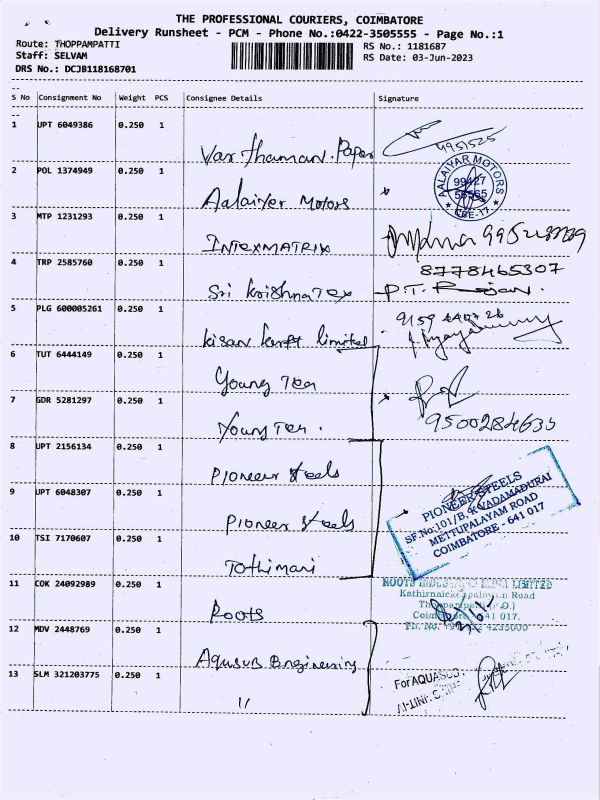 THE PROFESSIONAL COURIERS, COIMBATORE
Delivery Runsheet - PCM - Phone No.:0422-3505555 - Page No.:1
Route: THOPPAMPATTI RS No.: 1181687
Staff: SELVAM RS Date: 03-Jun-2023
DRS No.: DCJB118168701
S No Consignment No Weight PCS Consignee Details Signature
1 UPT 6049386 0.250 1
Varthaman. Paper 9951525
2 POL 1374949 0.250 1
Aalaiyer Motors
AALAIYAR MOTORS
99427
56565
CBE-17.
3 MTP 1231293 0.250 1
INTEXMATRIX
4 TRP 2585760 0.250 1 8778465307
Sri KrishnaTex P.T. Rajan.
5 PLG 600005261 0.250 1
kisan kraft limited
6 TUT 6444149 0.250 1
Young Tea
7 GDR 5281297 0.250 1
Young Tea . 9500284635
8 UPT 2156134 0.250 1
Pioneer steels
PIONEER STEELS
SF.No.101/B, K.VADAMADURAI
METTUPALAYAM ROAD
COIMBATORE - 641 017
9 UPT 6048307 0.250 1
Pioneer steels
10 TSI 7170607 0.250 1
Tothimari
11 COK 24092989 0.250 1
Roots
ROOTS LIMITED
Road
641 017.
12 MDV 2448769 0.250 1
Aquasub Engineering
13 SLM 321203775 0.250 1
For AQUASUB
11